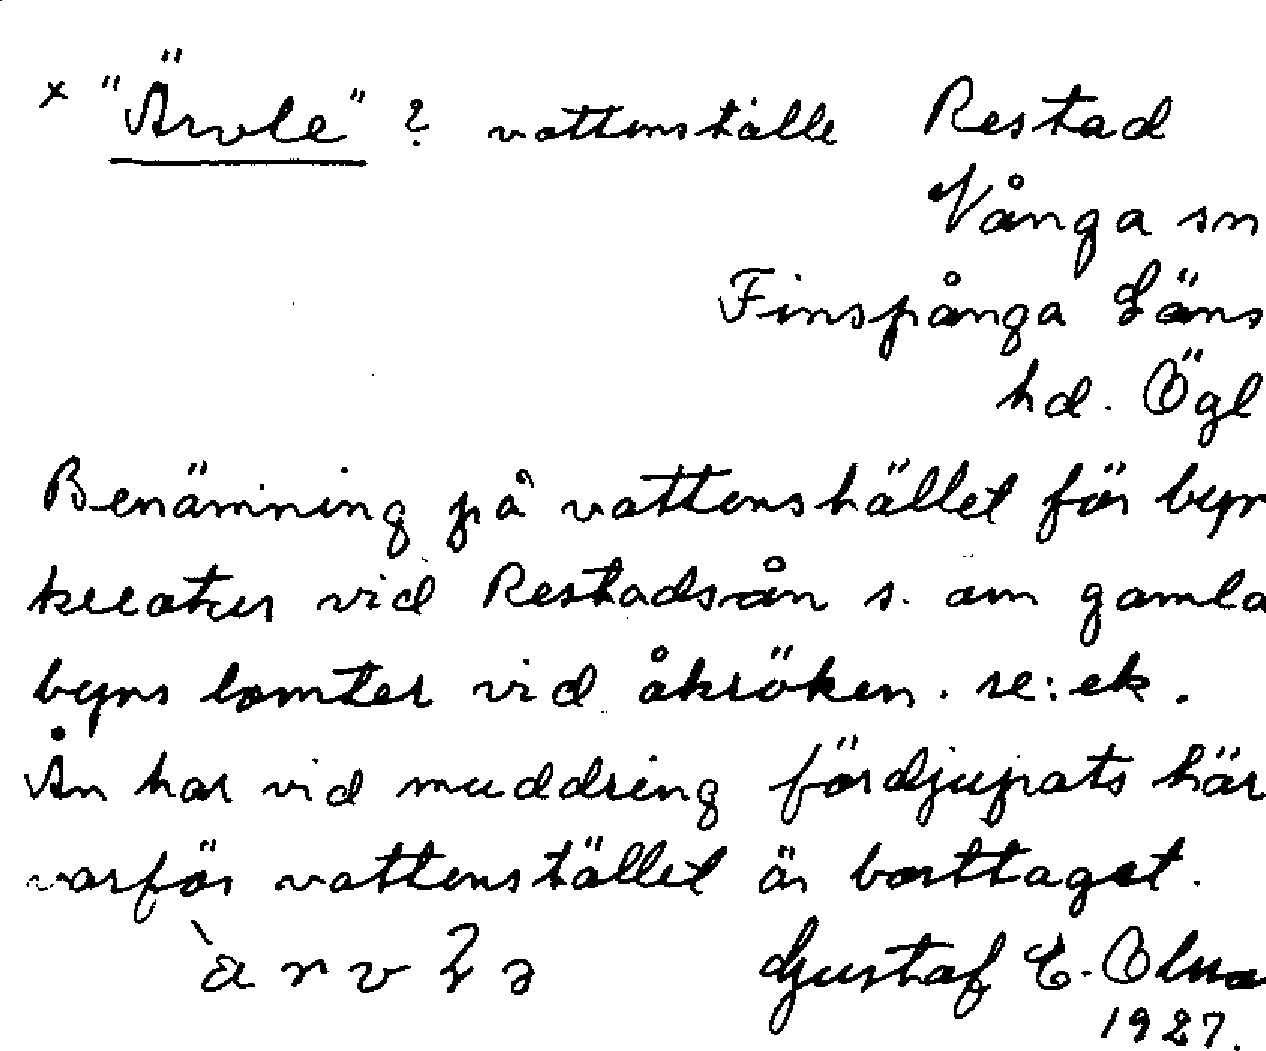 x "Ärvle" ? vattenställe Restad
Vånga sn
Finspånga Läns
hd. Ögl
Benämning på vattenstället för byns
kreatur vid Restadsån s. om gamla
byns tomter vid åkröken. re: ek.
Ån har vid muddring fördjupats här
varför vattenstället är borttaget.
Gustaf E.
1927.